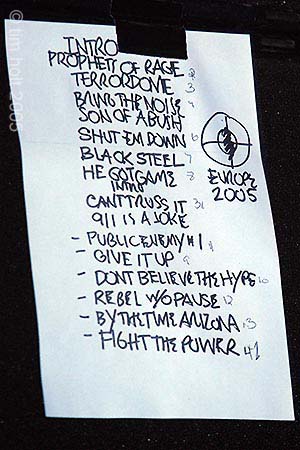 © tim holt 2005
INTRO
PROPHETS OF RAGE 2
TERRORDOME 3
BRING THE NOISE 4
SON OF A BUSH
SHUT EM DOWN 6
BLACK STEEL 7
HE GOT GAME 8
INTRO
CANT TRUSS IT 31
911 IS A JOKE
- PUBLIC ENEMY #1 9
- GIVE IT UP 9
- DONT BELIEVE THE HYPE 10
- REBEL W/O PAUSE 12
- BY THE TIME ARIZONA 13
- FIGHT THE POWER 41
EUROPE
2005